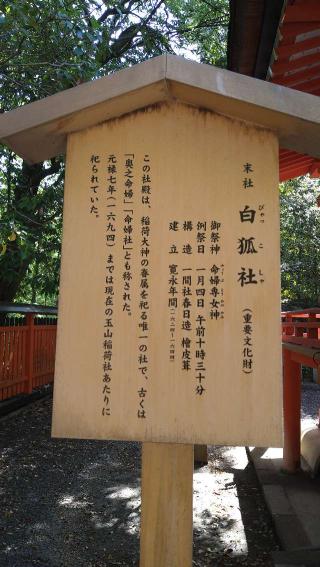 末社 白狐社 (重要文化財)
びゃっ こ しゃ
御祭神 命婦専女神
例祭日 一月四日 午前十時三十分
構造 一間社春日造 檜皮葺
建立 寛永年間(一六二四~一六四四)
この社殿は、稲荷大神の眷属を祀る唯一の社で、古くは
「奥之命婦」「命婦社」とも称された。
元禄七年(一六九四)までは現在の玉山稲荷社あたりに
祀られていた。